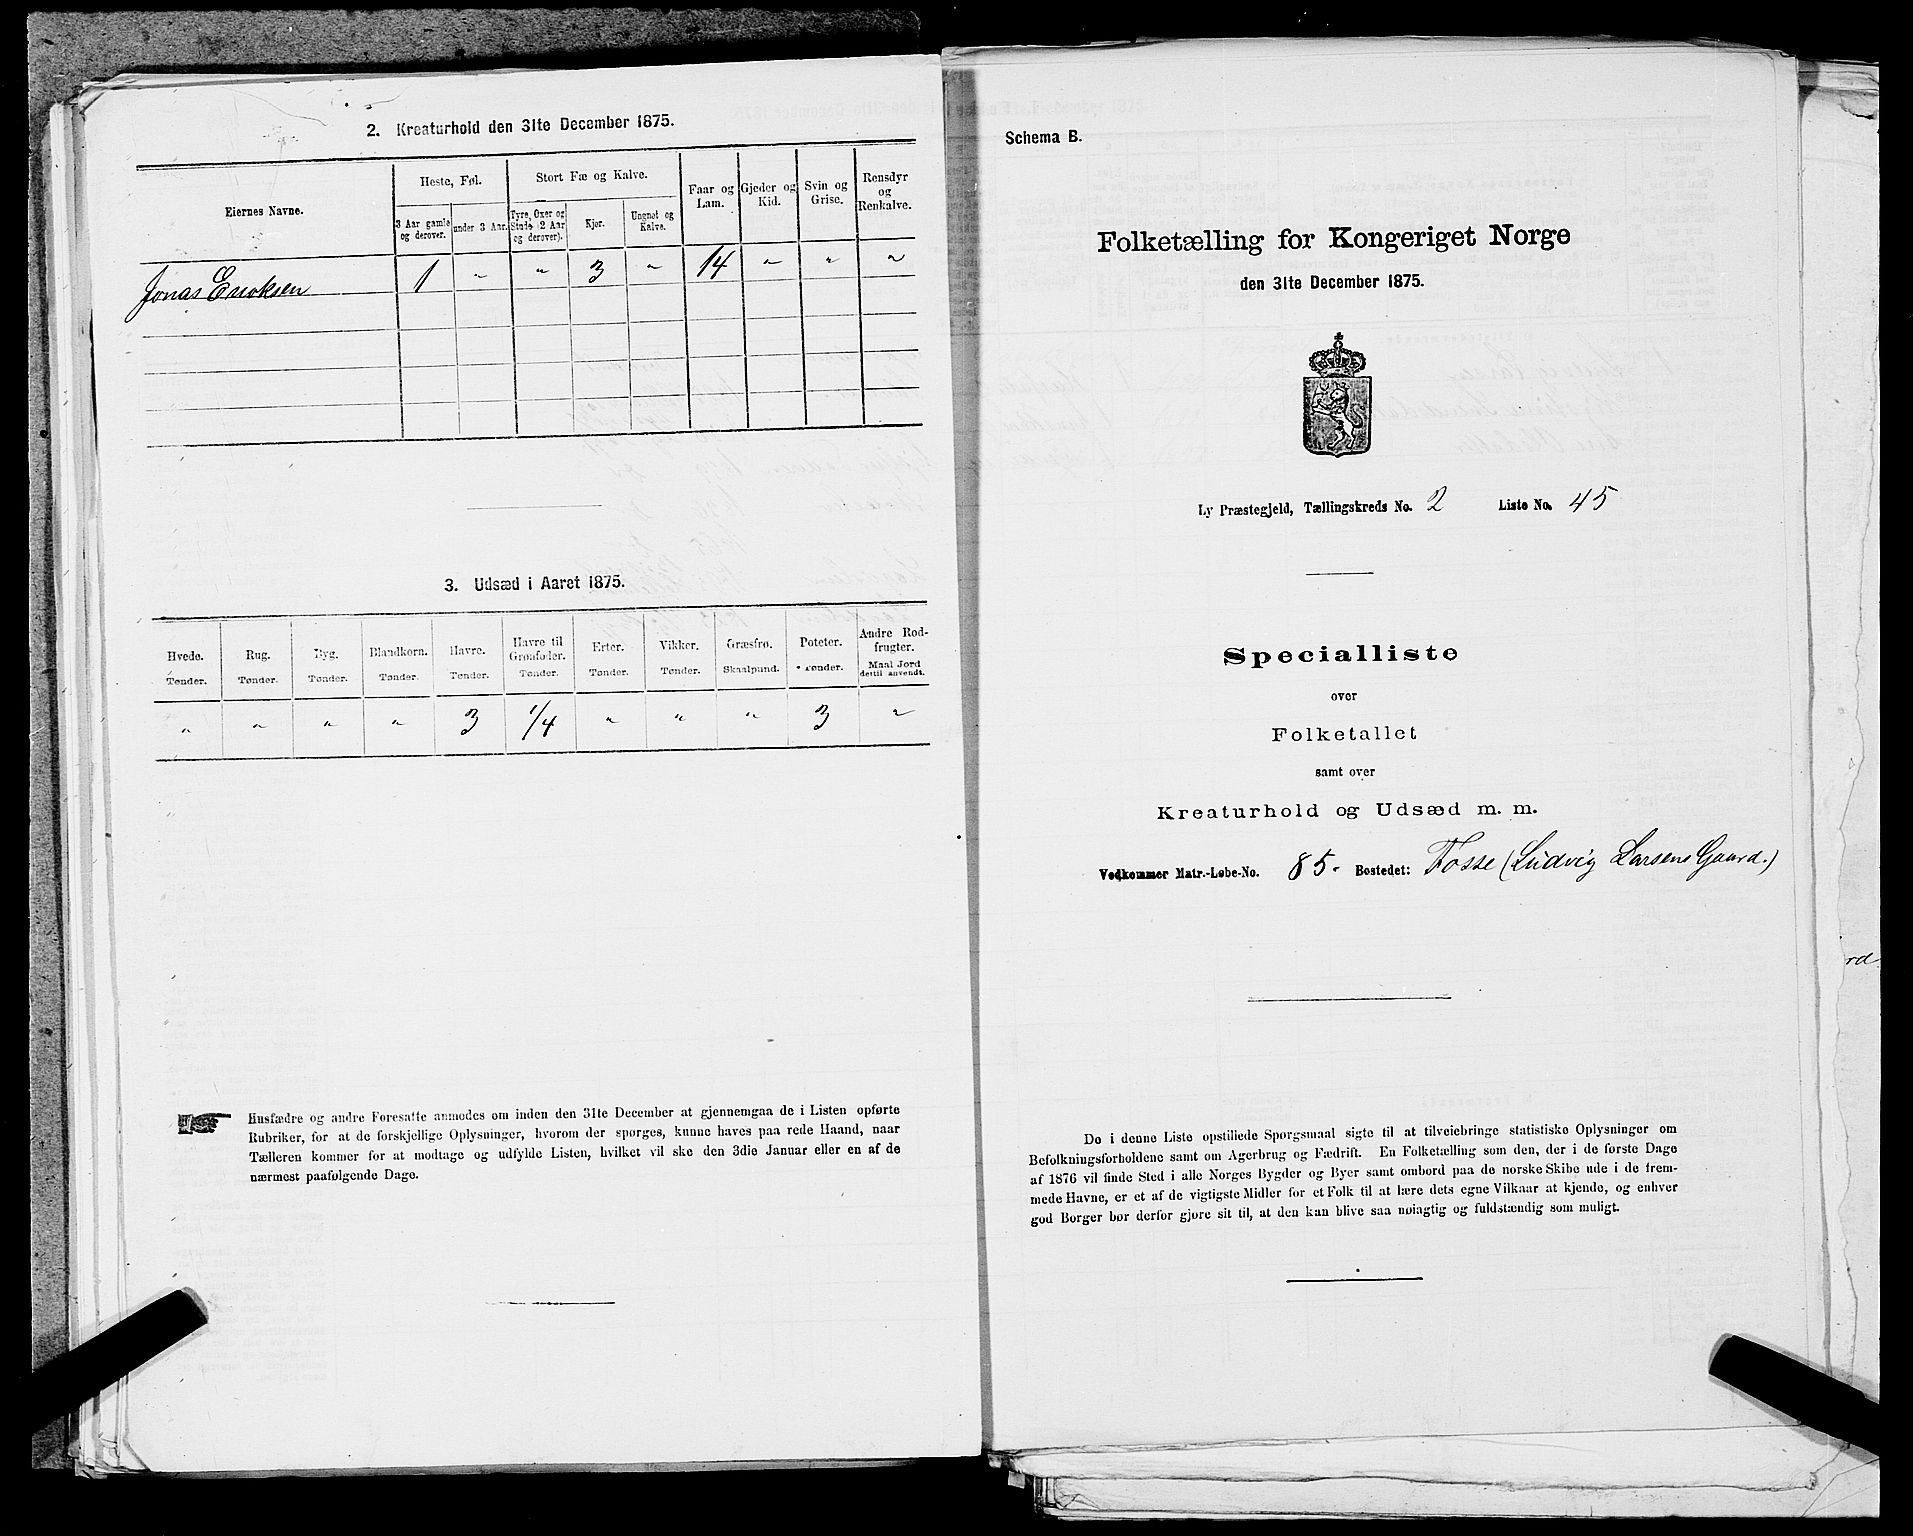 2. Kreaturhold den 31te December 1875.
Eiernes Navne.
Heste, Føl.
3 Aar gamle og derover.
under 3 Aar.
Stort Fæ og Kalve.
Tyre, Oxer og Stude (2 Aar og derover).
Kjør.
Ungnøt og Kalve.
Faar og Lam.
Gjeder og Kid.
Svin og Grise.
Rensdyr og Renkalve.
Jonas Eriksen 1 " " 3 " 14 " " "
3. Udsæd i Aaret 1875.
Hvede. Rug. Byg. Blandkorn. Havre. Havre til Grønfoder. Erter. Vikker. Græsfrø. Poteter. Andre Rodfrugter.
Tønder. Tønder. Tønder. Tønder. Tønder. Tønder. Tønder. Tønder. Skaalpund. Tønder. Maal Jord dertil anvendt.
" " " " 3 1/4 " " " 3 "
Husfædre og andre Foresatte anmodes om inden den 31te December at gjennemgaa de i Listen opførte
Rubriker, for at de forskjellige Oplysninger, hvorom der spørges, kunne haves paa rede Haand, naar
Tælleren kommer for at modtage og udfylde Listen, hvilket vil ske den 3die Januar eller en af de
nærmest paafølgende Dage.
Schema B.
Folketælling for Kongeriget Norge
den 31te December 1875.
Ly Præstegjeld, Tællingskreds No. 2 Liste No. 45
Specialliste
over
Folketallet
samt over
Kreaturhold og Udsæd m. m.
Vedkommer Matr.-Løbe-No. 85. Bostedet: Fosse (Ludvig Larsens Gaard.)
De i denne Liste opstillede Spørgsmaal sigte til at tilveiebringe statistiske Oplysninger om
Befolkningsforholdene samt om Agerbrug og Fædrift. En Folketælling som den, der i de første Dage
af 1876 vil finde Sted i alle Norges Bygder og Byer samt ombord paa de norske Skibe ude i de frem-
mede Havne, er et af de vigtigste Midler for et Folk til at lære dets egne Vilkaar at kjende, og enhver
god Borger bør derfor gjøre sit til, at den kan blive saa nøiagtig og fuldstændig som muligt.
rd